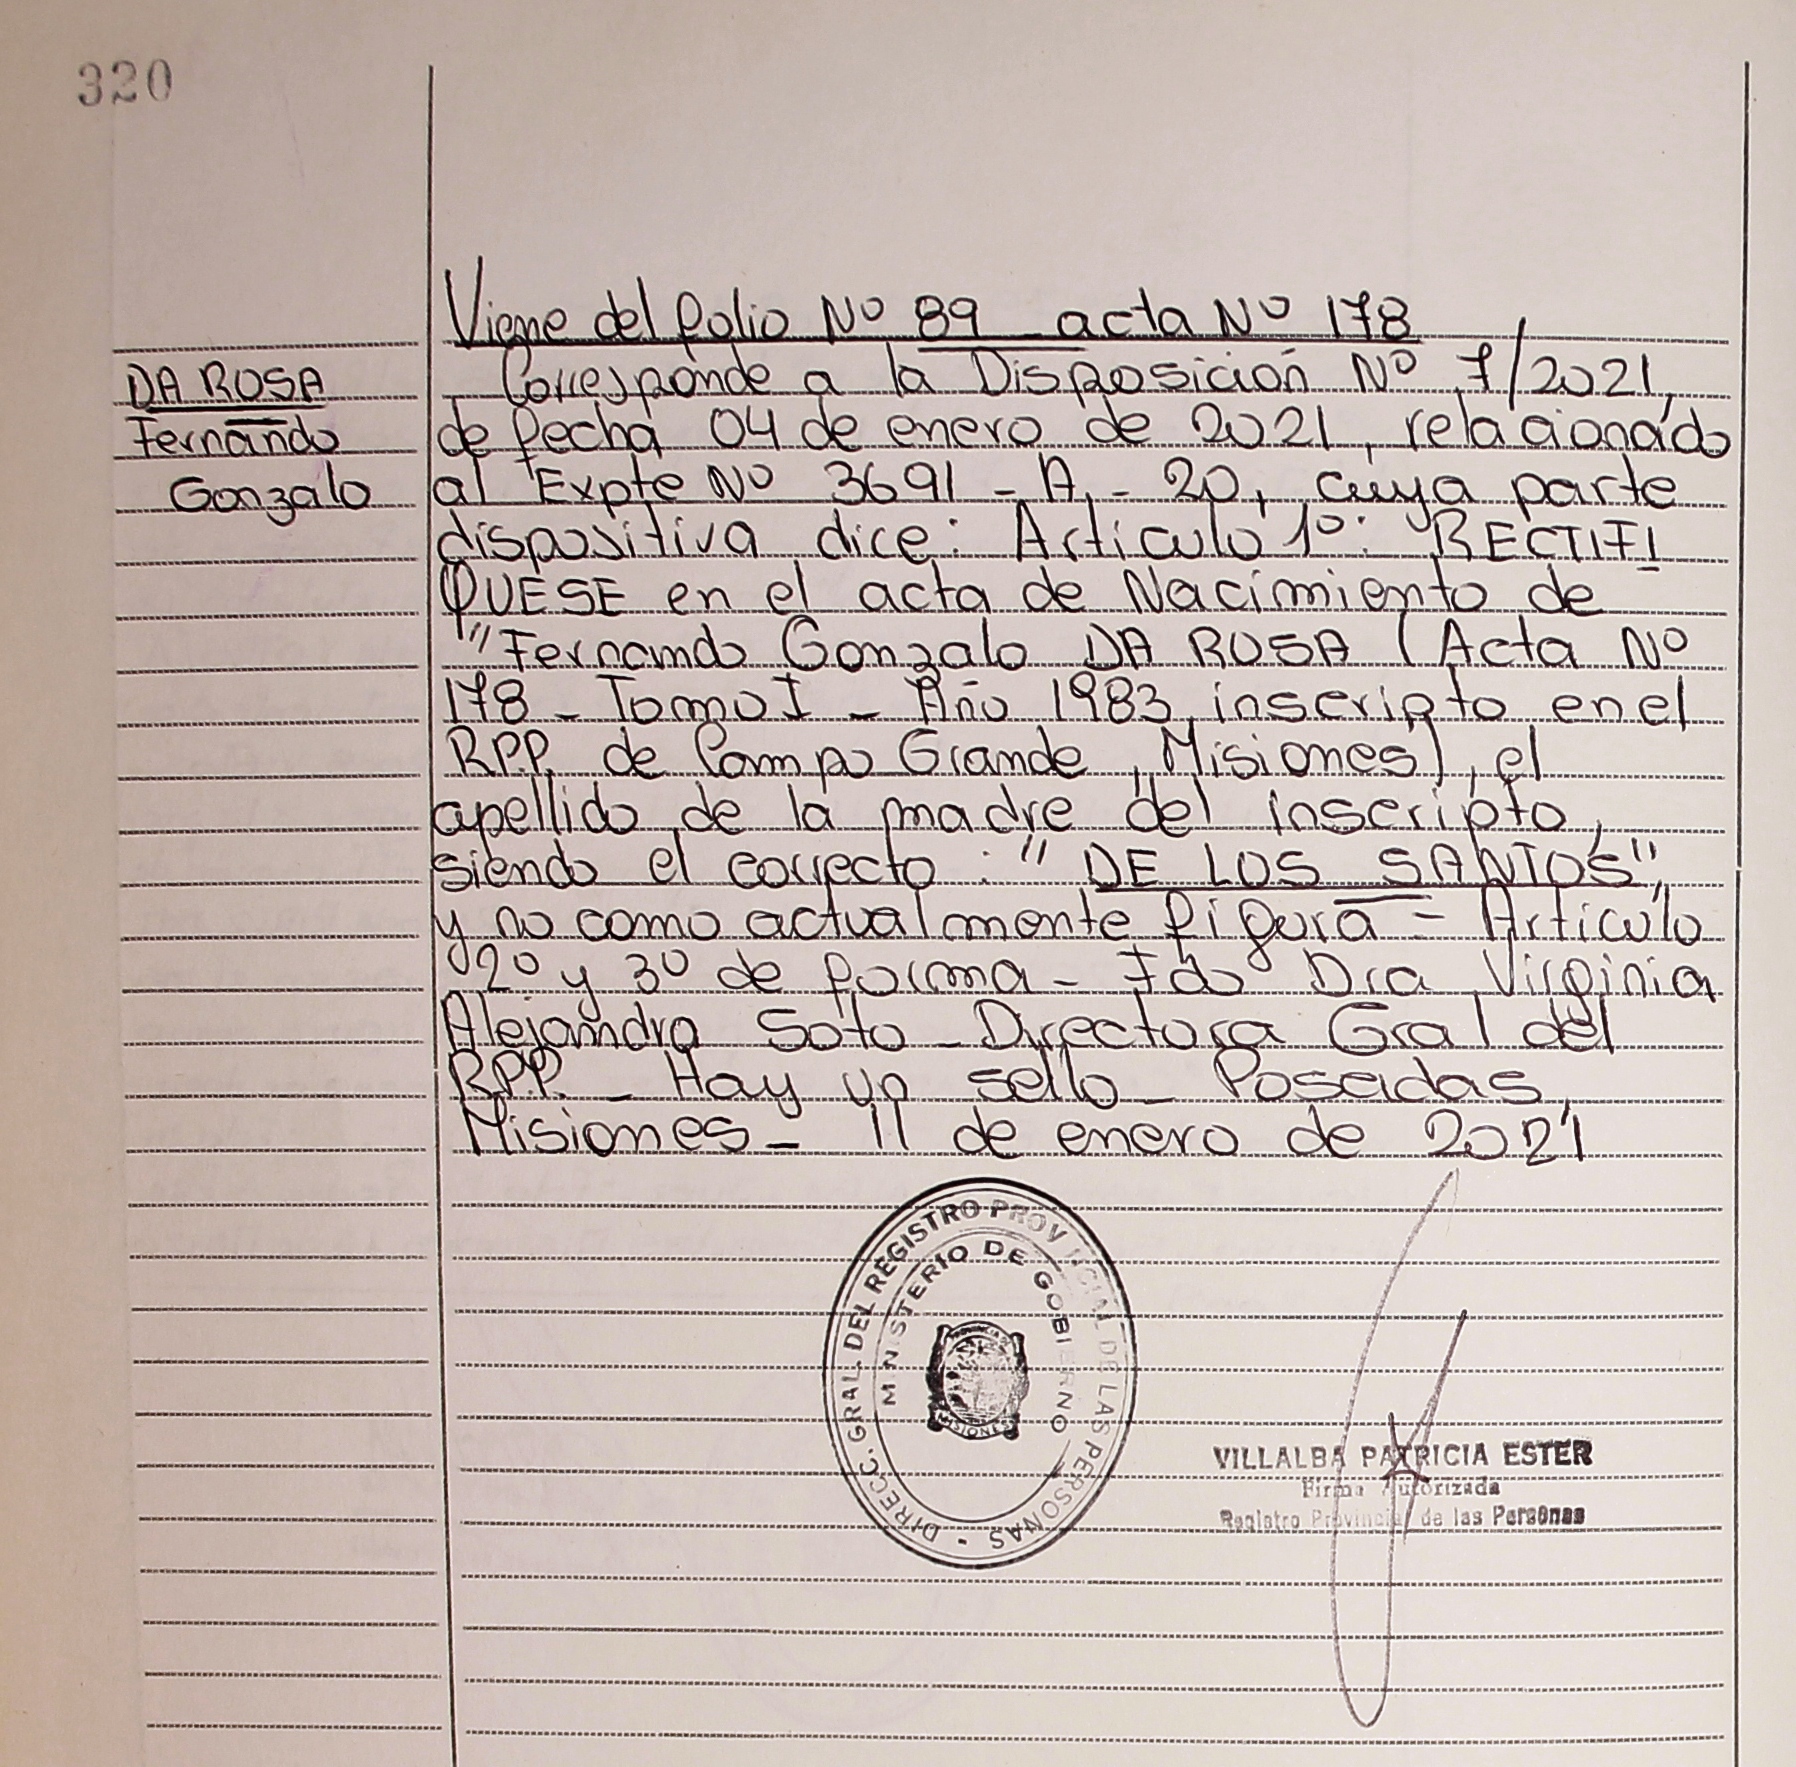 320
DA ROSA
Fernando
Gonzalo
Viene del folio Nº 89 acta Nº 178
Corresponde a la Disposición Nº 7/2021,
de fecha 04 de enero de 2021, relacionado
al Expte Nº 3691 - A - 20, cuya parte
dispositiva dice: Artículo 1º: RECTIFI
QUESE en el acta de Nacimiento de
"Fernando Gonzalo DA ROSA (Acta Nº
178 - Tomo I - Año 1983, inscripto en el
RPP. de Campo Grande, Misiones), el
apellido de la madre del inscripto,
siendo el correcto: "DE LOS SANTOS",
y no como actualmente figura = Artículo
2º y 3º de forma - Fdo Dra Virginia
Alejandra Soto - Directora Gral del
RPP. - Hay un sello - Posadas,
Misiones - 11 de enero de 2021
DIRECC. GRAL. DEL REGISTRO PROVINCIAL DE LAS PERSONAS -
MINISTERIO DE GOBIERNO
PROVINCIA DE
MISIONES
VILLALBA PATRICIA ESTER
Firma Autorizada
Registro Provincial de las Personas